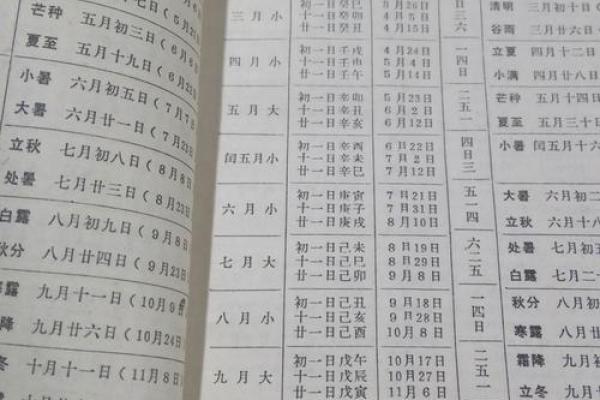 芒种 五月初三日(6月
夏至 五月十九日(6月
小暑 六月初五日(7月7日
大暑 六月廿一日(7月23日
立秋 七月初八日(8月8日
处暑 七月廿三日(8月23
白露 八月初九日(9月8
秋分 八月廿四日(9月23
露 九月十一日(10月9
降 九月廿六日(10月24
冬 十月十一日(11月8日)
三月小
初一日癸巳 3月26日
十一日癸卯 4月5日
廿一日癸丑 4月15日
日三六
四月小
初一日壬戌 4月24日
十一日壬申 5月4日
廿一日壬午 5月14日
一四日
五月大
初一日辛卯 5月23日
十一日辛丑 6月2日
廿一日辛亥 6月12日
二五一
闰五月小
初一日辛酉 6月22日
十一日辛未 7月2日
廿一日辛巳 7月12日
四日三
六月小
初一日庚寅 7月21日
十一日庚子 7月31日
廿一日庚戌 8月10日
五一四
七月大
初一日己未 8月19日
十一日己巳 8月29日
廿一日己卯 9月8日
六二五
八月小
初一日己丑 9月18日
十一日己亥 9月28日
廿一日己酉 10月8日
一四日
九月大
初一日戊午 10月17日
十一日戊辰 10月27日
廿一日戊寅 11月6日
二五一
清明 三月初十日(
谷雨 三月廿六日(
立夏 四月十二日(
小满 四月廿八日(
芒种 五月十四日(
夏至 五月三十日(
小暑 闰五月十六
大暑 六月初二日
立秋 六月十八日
处暑 七月初
白露 七月二十
秋分 八月初
寒露 八月廿
霜降 九月初